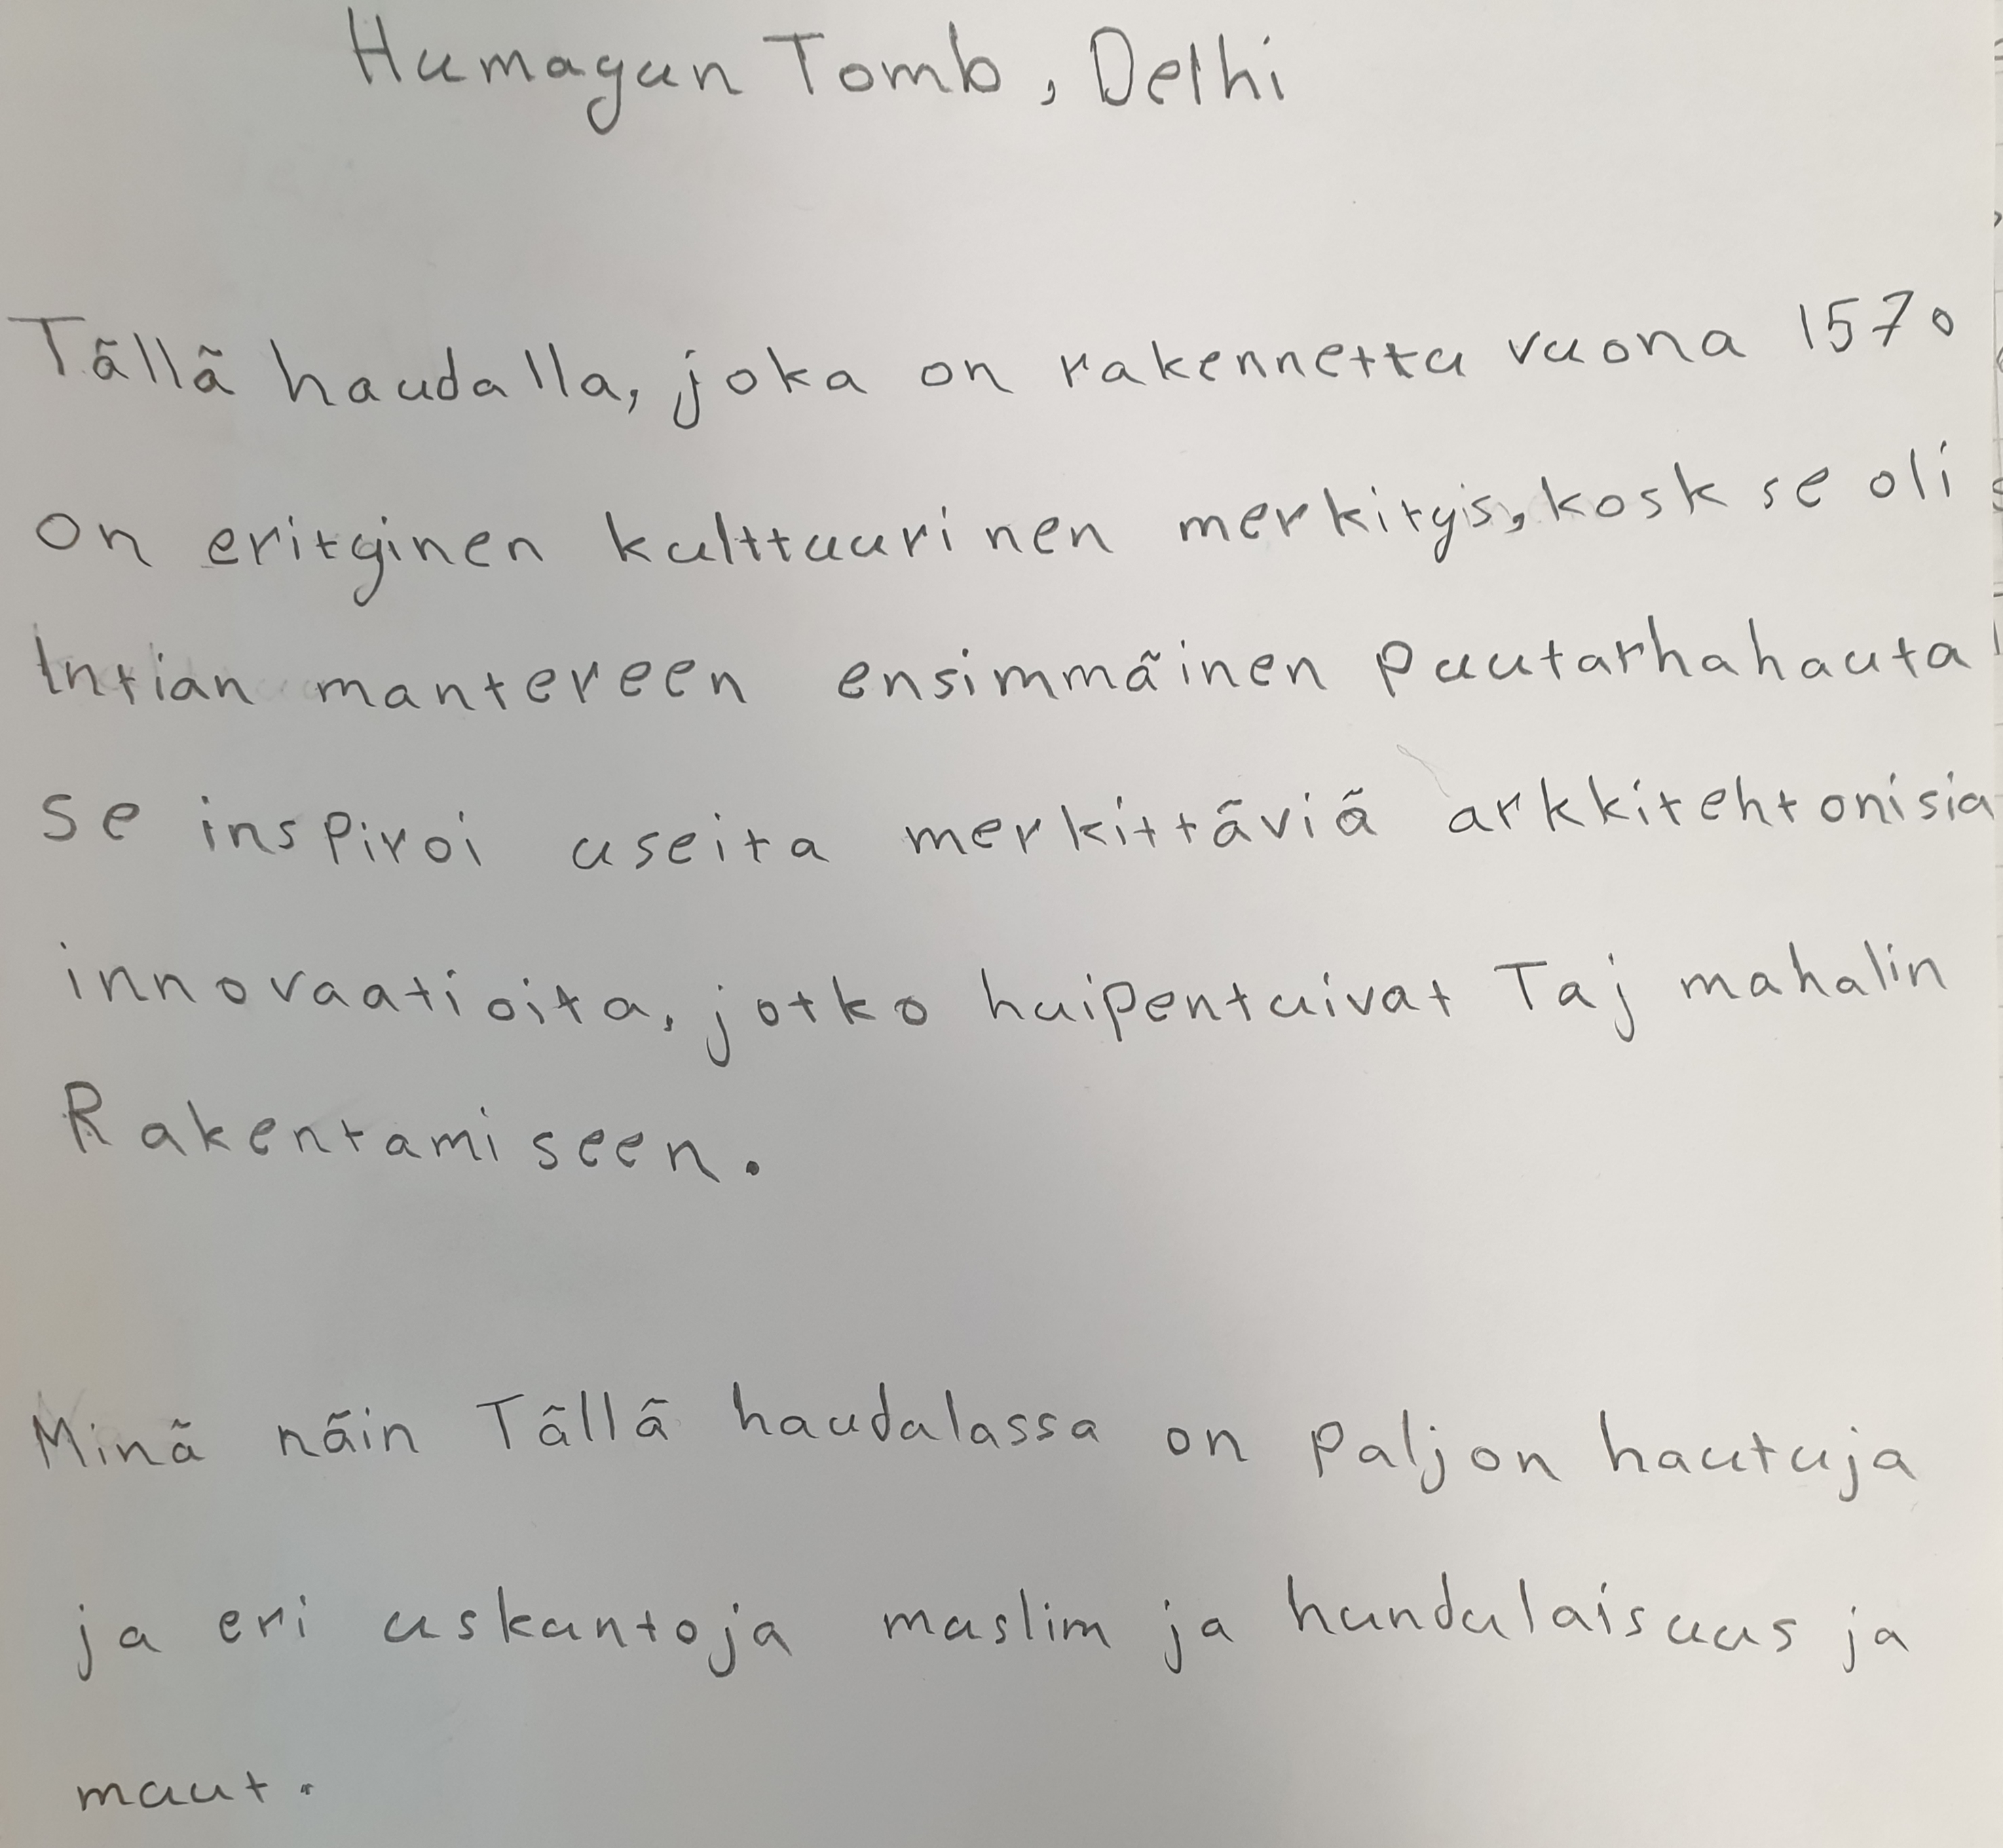 Humayun Tomb, Delhi
Tällä haudalla, joka on rakennettu vuona 1570
on erityinen kulttuurinen merkitys, kosk se oli
Intian mantereen ensimmäinen puutarhahauta
se inspiroi useita merkittäviä arkkitehtonisia
innovaatioita, jotko huipentuivat Taj mahalin
Rakentamiseen.
Minä näin Tällä haudalassa on paljon hautuja
ja eri uskuntoja muslim ja hundulaisuus ja
muut.